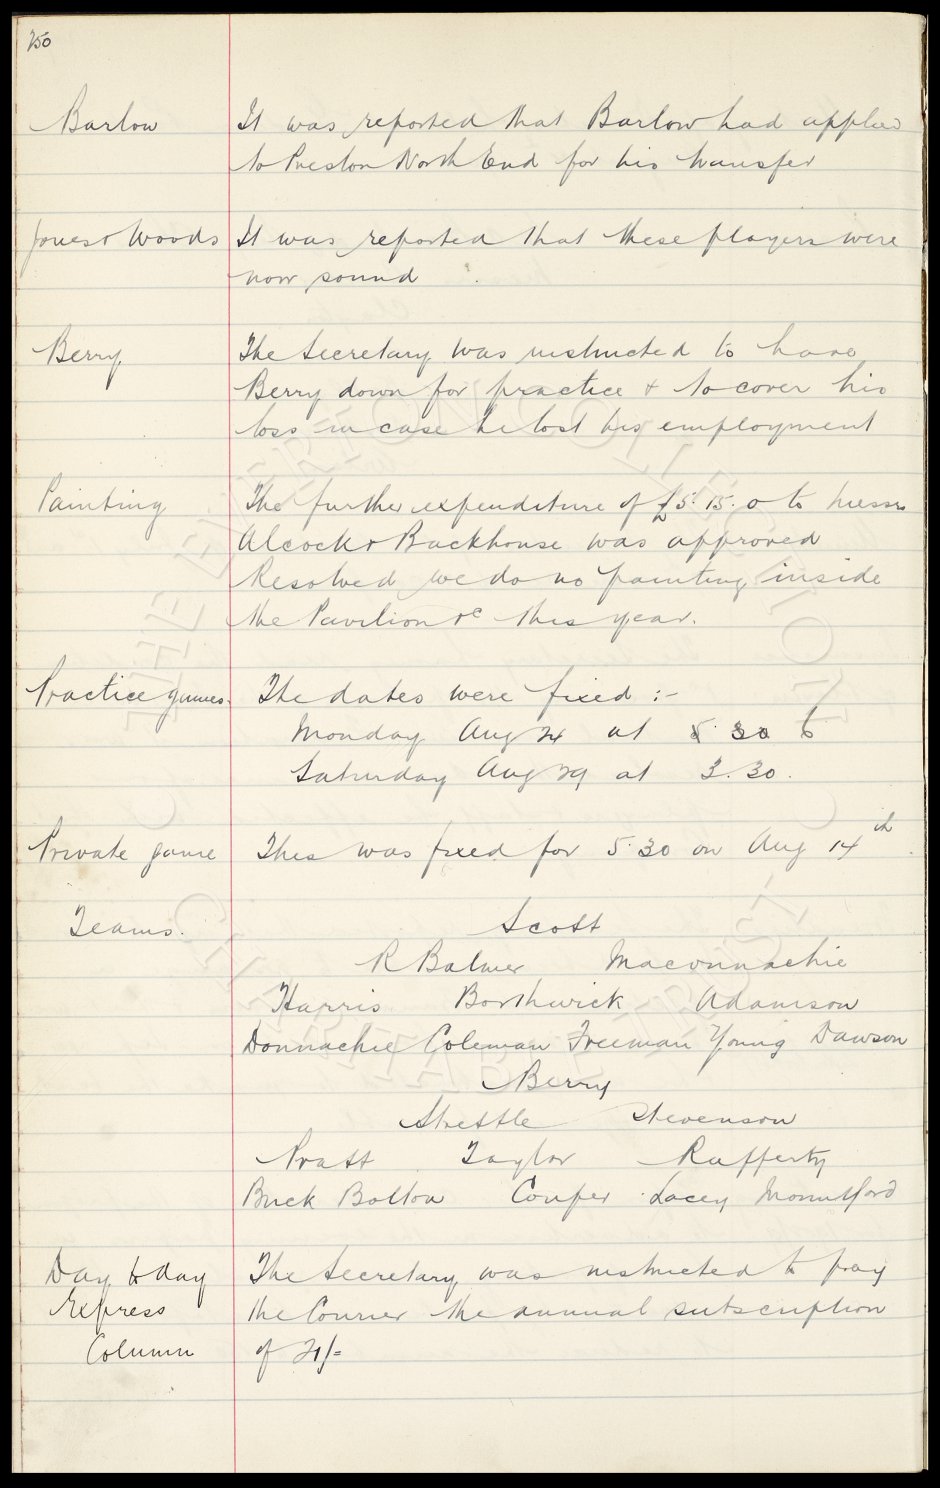 250
Barlow It was reported that Barlow had applied
to Preston North End for his transfer
Jones & Woods It was reported that these players were
now sound
Berry The Secretary was instructed to have
Berry down for practice & to cover his
loss in case he lost his employment
Painting The further expenditure of £5. 15. 0 to Messrs
Alcock & Backhouse was approved
Resolved we do no painting inside
the Pavilion &c this year.
Practice games. The dates were fixed :-
Monday Aug 24 at 5.30 6
Saturday Aug 29 at 3.30.
Private game This was fixed for 5.30 on Aug 14th
Teams. Scott
R Balmer Maconnachie
Harris Borthwick Adamson
Donnachie Coleman Freeman Young Dawson
Berry
Strettle Stevenson
Pratt Taylor Rafferty
Buck Bolton Couper Lacey Mountford
Day to day The Secretary was instructed to pay
Express the Courier the annual subscription
Column of 21/=
THE EVERTON COLLECTION
CHARITABLE TRUST